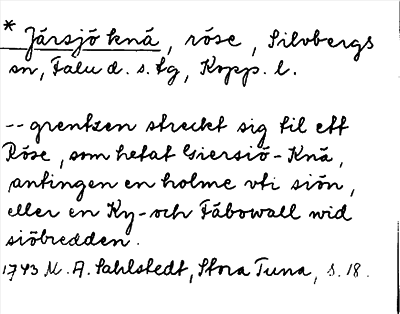 * Järsjö knä, röse, Silvbergs
sn, Falu d. s. tg, Kopp. l.
-- grentzen streckt sig til ett
Röse, som hetat Giersiö-Knä,
antingen en holme vti siön,
eller en Ky- och Fäbowall wid
siöbredden.
1743 M. A. Sahlstedt, Stora Tuna, s. 18.